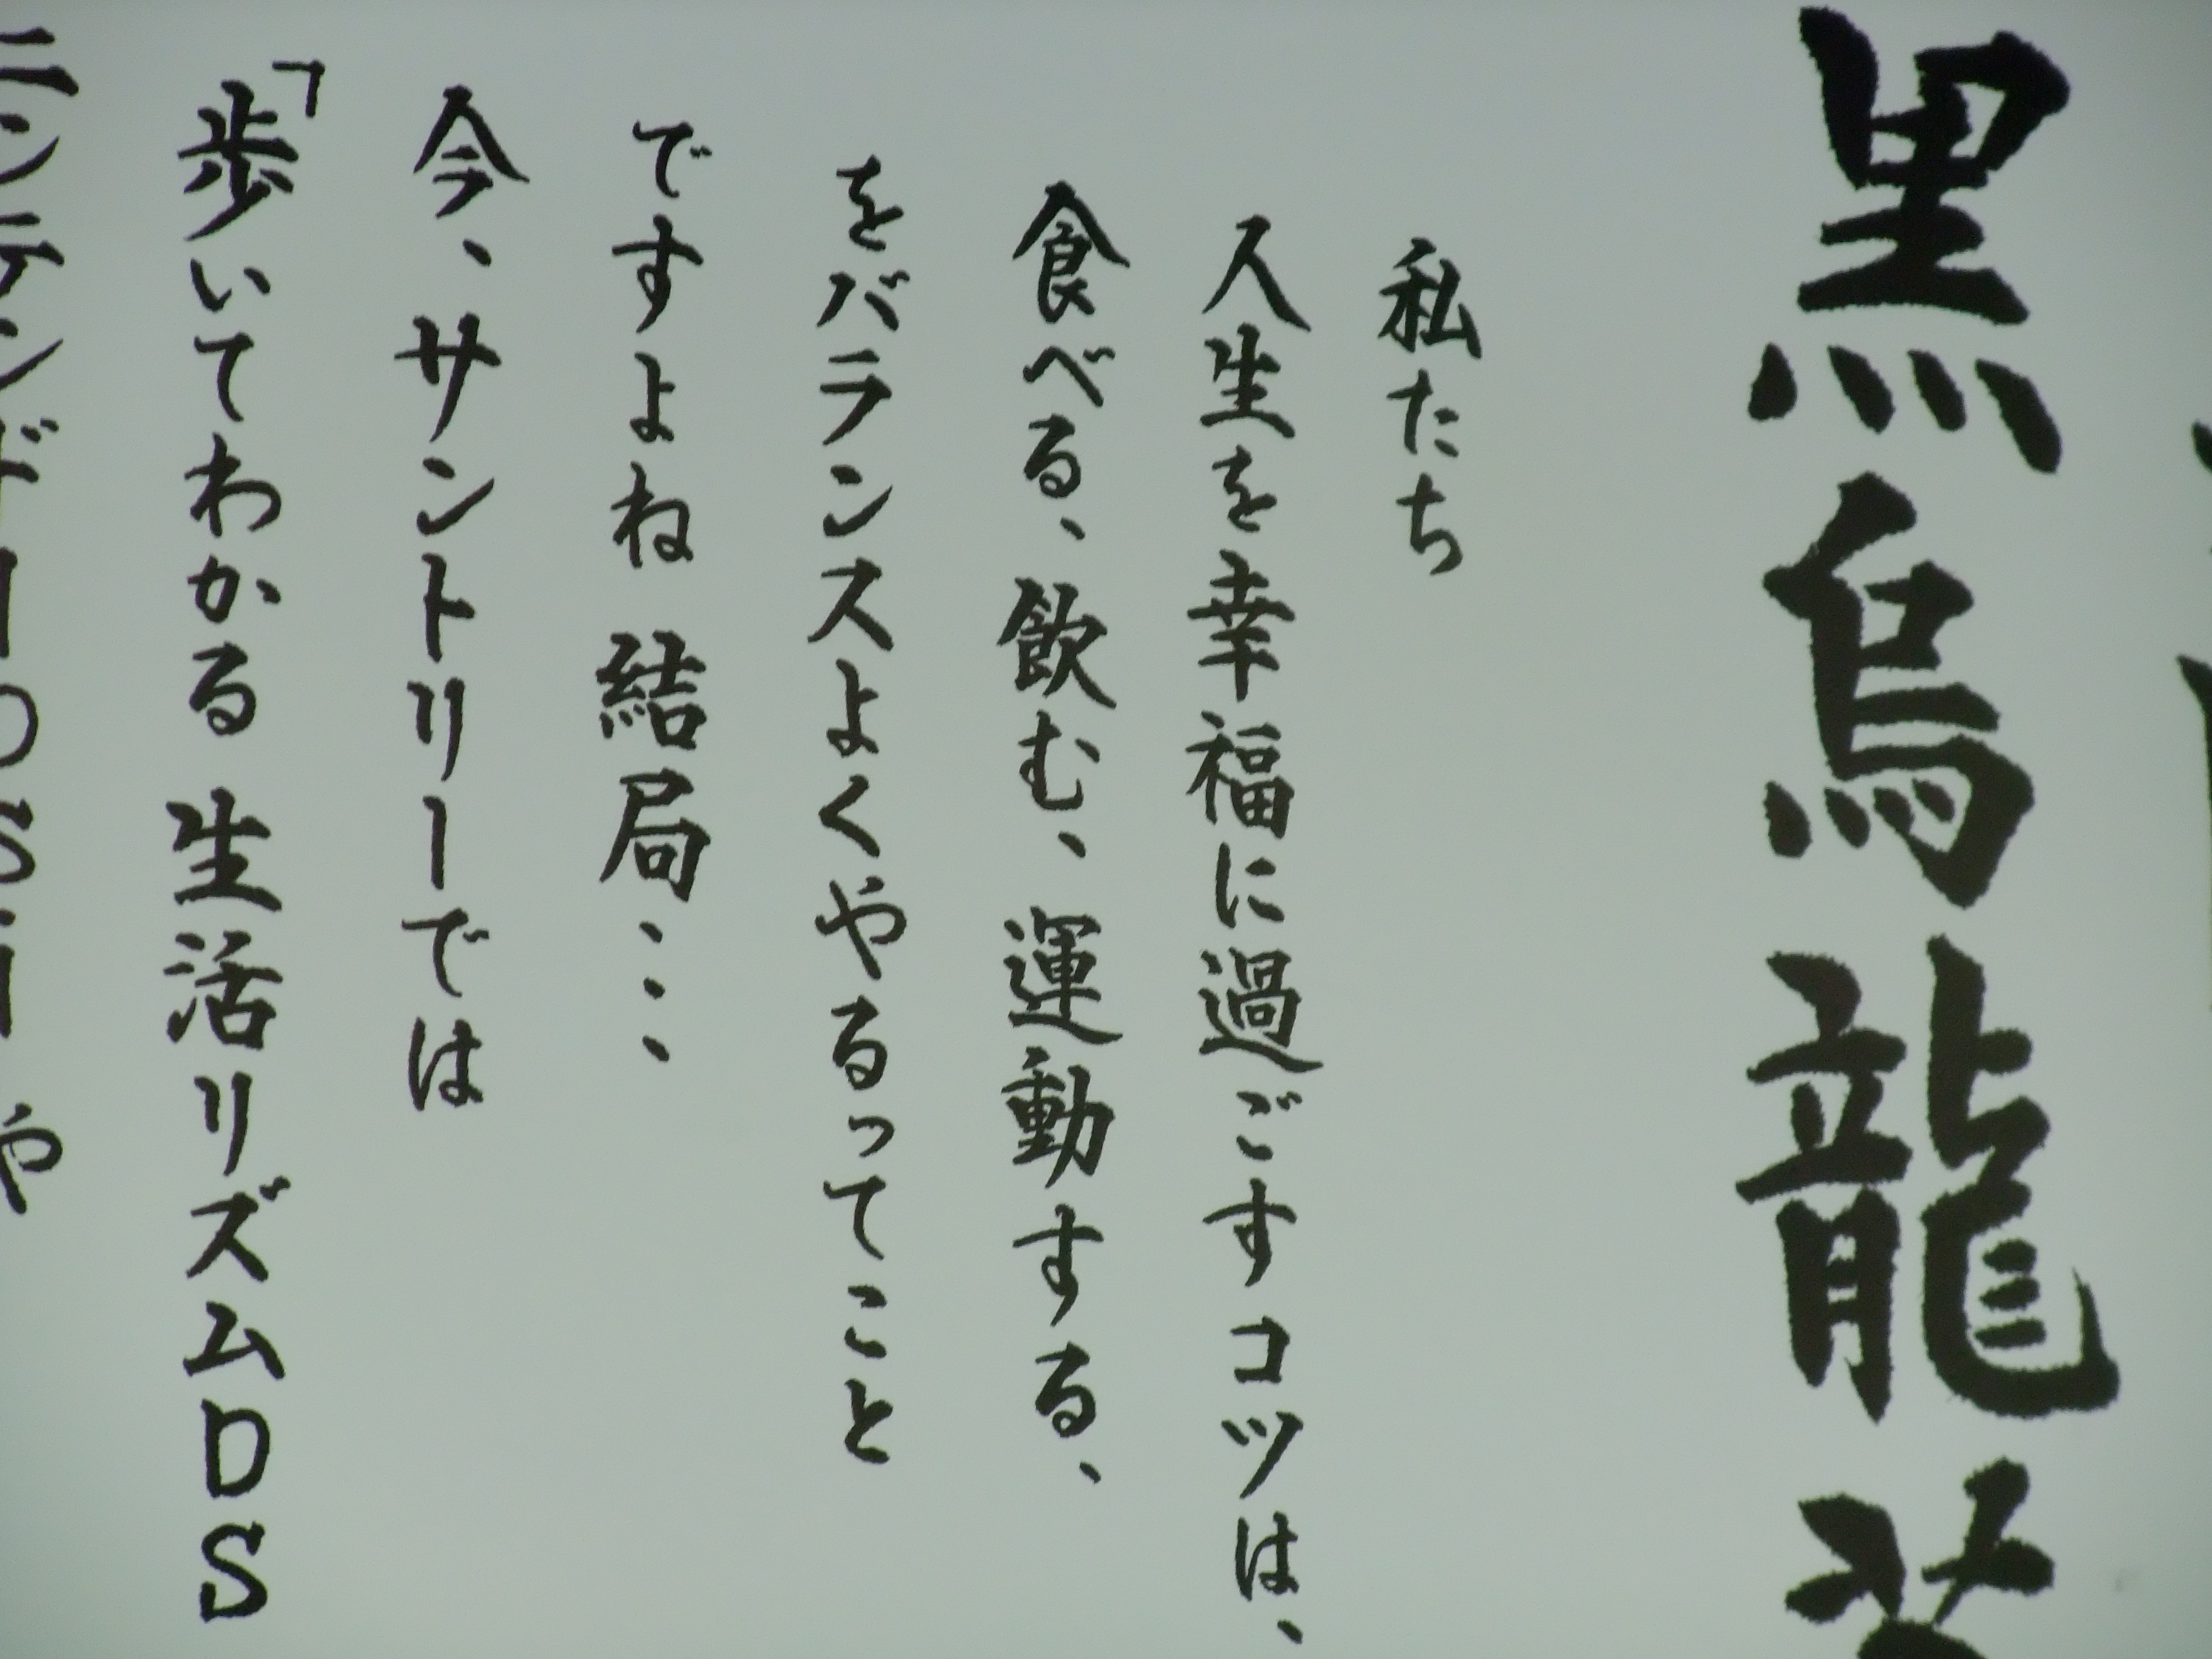 黒烏龍茶
私たち
人生を幸福に過ごすコツは、
食べる、飲む、運動する、
をバランスよくやるってこと
ですよね 結局・・・
今、サントリーでは
「歩いてわかる 生活リズムDS
ニンテンドーDSi や